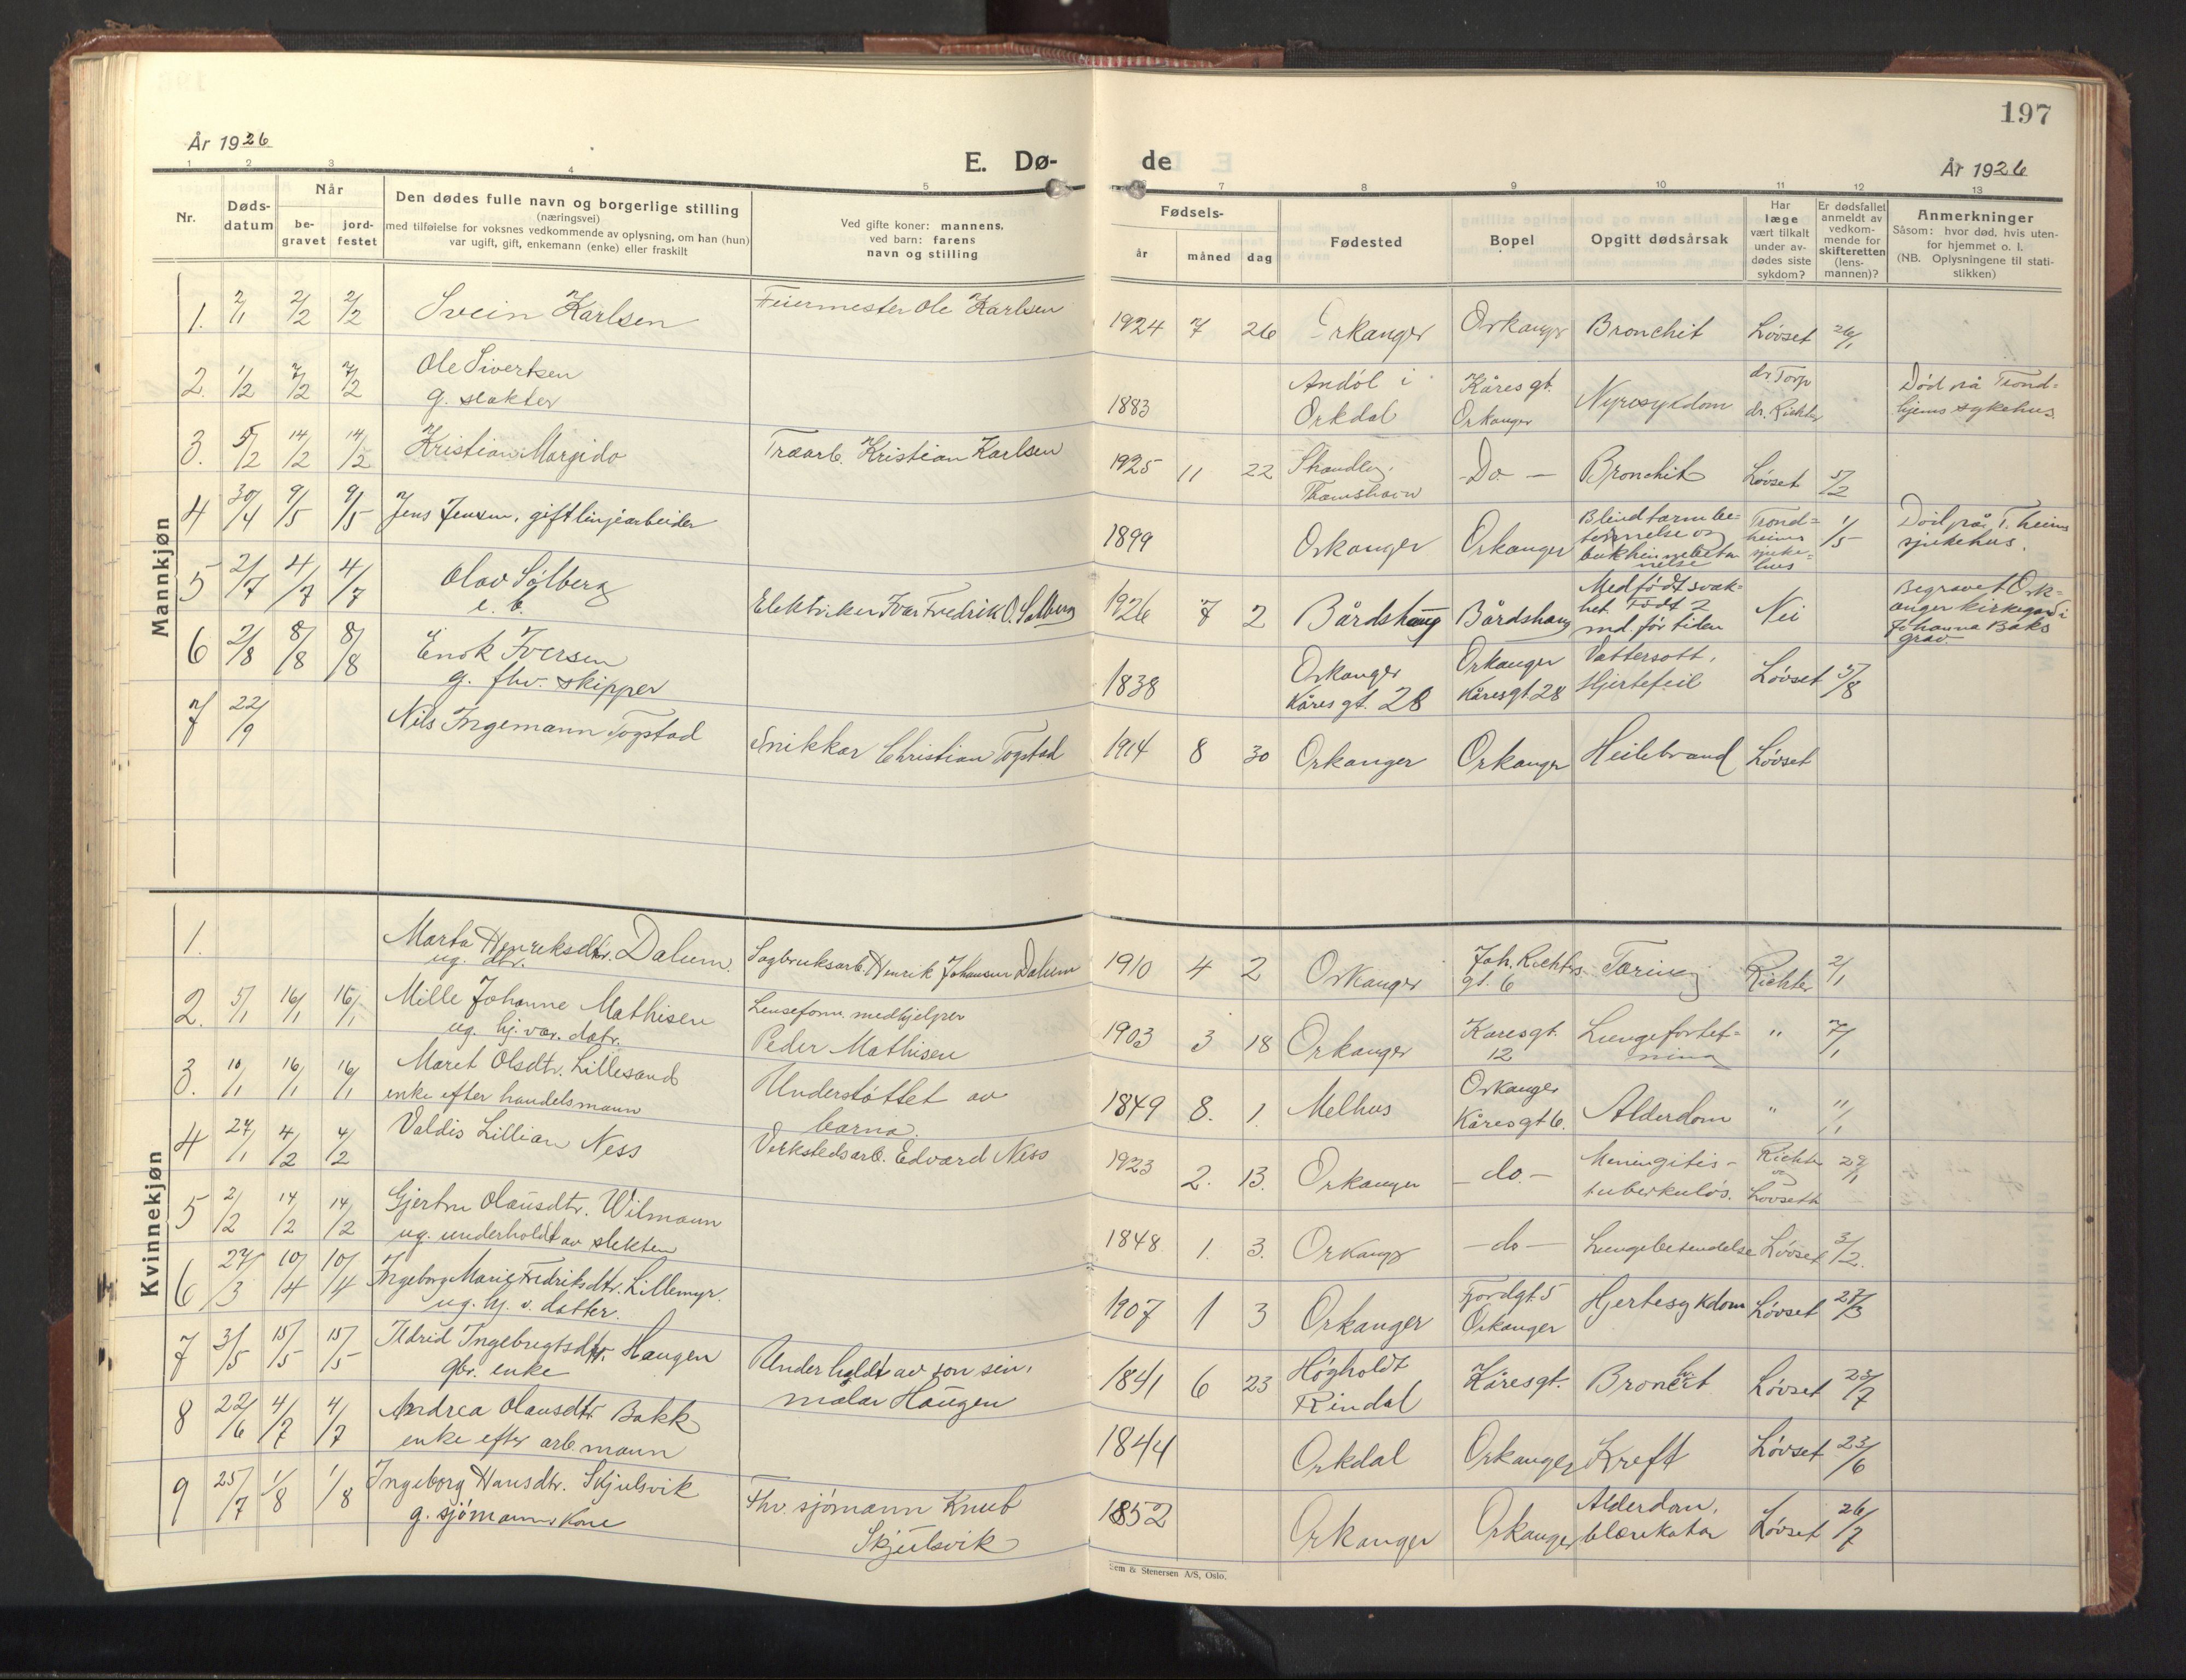 197
År 1926
E. Dø-
de
År 1926
1 2 3 4 5 7 8 9 10 11 12 13
Nr.
Døds-
datum
Når
be-
gravet
jord-
festet
Den dødes fulle navn og borgerlige stilling
(næringsvei)
med tilføielse for voksnes vedkommende av oplysning, om han (hun)
var ugift, gift, enkemann (enke) eller fraskilt
Ved gifte koner: mannens,
ved barn: farens
navn og stilling
Fødsels-
år
måned
dag
Fødested
Bopel
Opgitt dødsårsak
Har
læge
vært tilkalt
under av-
dødes siste
sykdom?
Er dødsfallet
anmeldt av
vedkom-
mende for
skifteretten
(lens-
mannen)?
Anmerkninger
Såsom: hvor død, hvis uten-
for hjemmet o. l.
(NB. Oplysningene til stati-
stikken)
Mannkjøn
1. 2/1 2/2 2/2 Svein Karlsen Feiermester Ole Karlsen 1924 7 26 Orkanger Orkanger Bronchit Løvset 26/1
2. 1/2 7/2 7/2 Ole Sivertsen
g. slakter
1883 Andøl i
Orkdal
Kåres gt.
Orkanger
Nyresykdom
dr. Torp
dr. Richter
Død på Trond-
hjems sykehus.
3. 5/2 14/2 14/2 Kristian Margido Træarb. Kristian Karlsen 1925 11 22
Thamshavn
- Do - Bronchit Løvset 5/2
4 30/4 9/5 9/5 Jens Jensen, gift linjearbeider 1899 Orkanger Orkanger
Blindtarmbe-
tennelse og
bukhinnebeten
nelse
Trond-
heims
sjuke-
hus
1/5
Død på T.heims
sjukehus.
5 2/7 4/7 4/7 Olav Solberg
e. b.
Elektriker Ivar Fredrik O. Solberg 1926 7 2 Bårdshaug Bårdshaug
Medfødt svak-
het. Født 2
md. før tiden
Nei
Begravet Ork-
anger kirkegård i
Johanna Baks
grav
6 2/8 8/8 8/8 Enok Iversen
g. fhv. skipper
1838 Orkanger
Kåres gt. 28
Orkanger
Kåresgt 28
Vattersott,
Hjertefeil
Løvset 5/8
7 22/9 Nils Ingemann Togstad Snikkar Christian Togstad 1914 8 30 Orkanger Orkanger Heilebrand Løvset
Kvinnekjøn
1. Marta Henriksdtr. Dalum
ug. dtr.
Sagbruksarb. Henrik Johansen Dalum 1910 4 2 Orkanger
Joh. Richters
gt. 6
Tæring Richter 2/1
2. 5/1 16/1 16/1 Mille Johanne Mathisen
ug. hj. vær. datr.
Lenseform. medhjelper
Peder Mathisen
1903 3 18 Orkanger
Kåresgt.
12
Lungefortet-
ning
" 7/1
3. 10/1 16/1 16/1 Maret Olsdtr. Lillesand
enke efter handelsmann
Understøttet av
barna.
1849 8. 1. Melhus
Orkanger
Kåresgt 6.
Alderdom " 11/1
4 27/1 4/2 4/2 Valdis Lillian Ness Verkstedsarb. Edvard Ness 1923 2. 13. Orkanger - do. -
Meningitis-
tuberkuløs.
Richter
og
Løvseth
29/1
5 2/2 14/2 14/2 Gjertru Olausdtr. Wilmann
ug. underholdt av slekten
1848 1. 3. Orkanger - do - Lungebetendelse Løvset 3/2.
6 27/3 10/4 10/4 Ingeborg Marie Fredriksdtr. Lillemyr.
ug. hj. v. datter.
1907 1 3 Orkanger
Fjordgt. 5
Orkanger
Hjertesykdom Løvset 27/3
7 3/5 15/5 15/5 Ildrid Ingebrigtsdtr. Haugen
gbr. enke
Underholdt av son sin,
målar Haugen
1841 6 23 Høgholdt
Rindal
Kåresgt. Bronchit Løvset 23/7
8 22/6 4/7 4/7 Andrea Olausdtr Bakk
enke efter arb.mann
1844 Orkdal Orkanger Kreft Løvset 23/6
9 25/7 1/8 1/8 Ingeborg Hansdtr. Skjulsvik
g. sjømanns kone
Fhv. sjømann Knut
Skjulsvik
1852 Orkanger Orkanger
Alderdom,
blærekatar
Løvset 26/7
Sem & Stenersen A/S, Oslo.